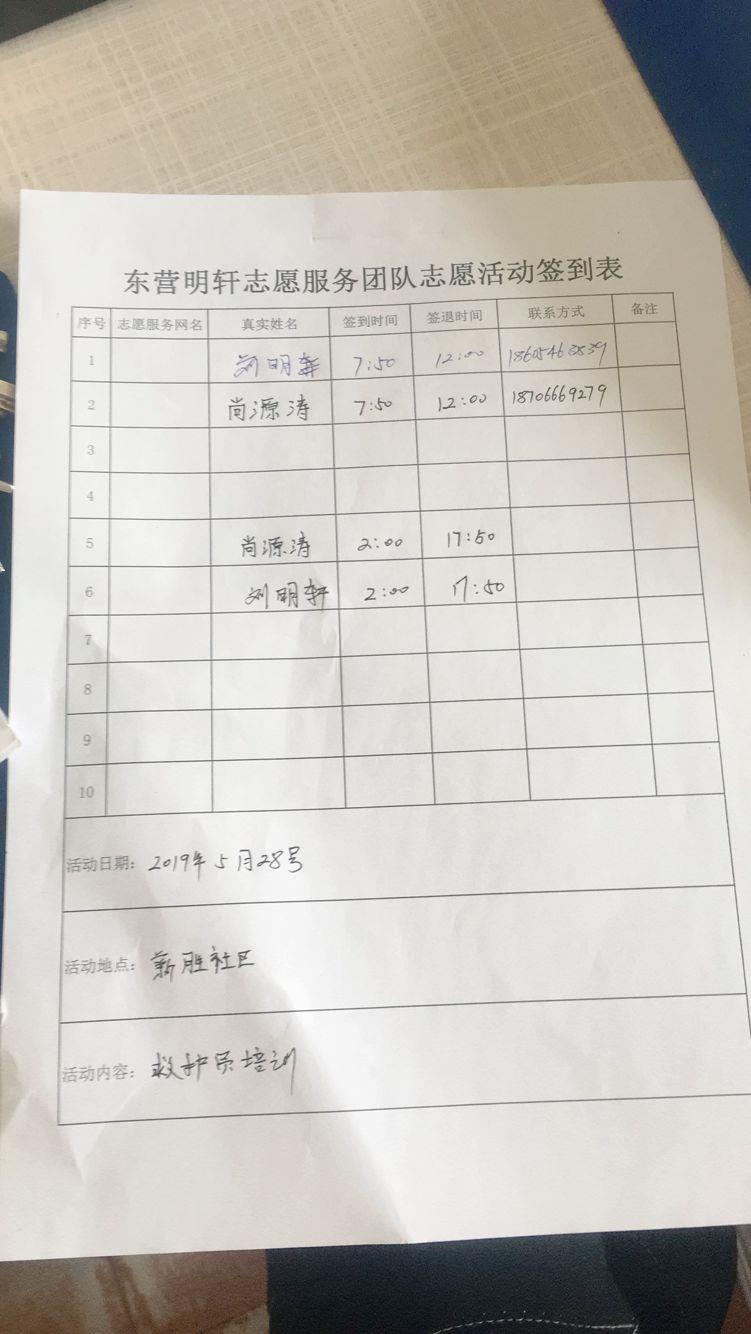 东营明轩志愿服务团队志愿活动签到表
序号 志愿服务网名 真实姓名 签到时间 签退时间 联系方式 备注
1 刘明轩 7:50 12:00 18605463839
2 尚源涛 7:50 12:00 18706669279
3
4
5 尚源涛 2:00 17:50
6 刘明轩 2:00 17:50
7
8
9
10
活动日期：2019年5月28号
活动地点：新胜社区
活动内容：救护员培训